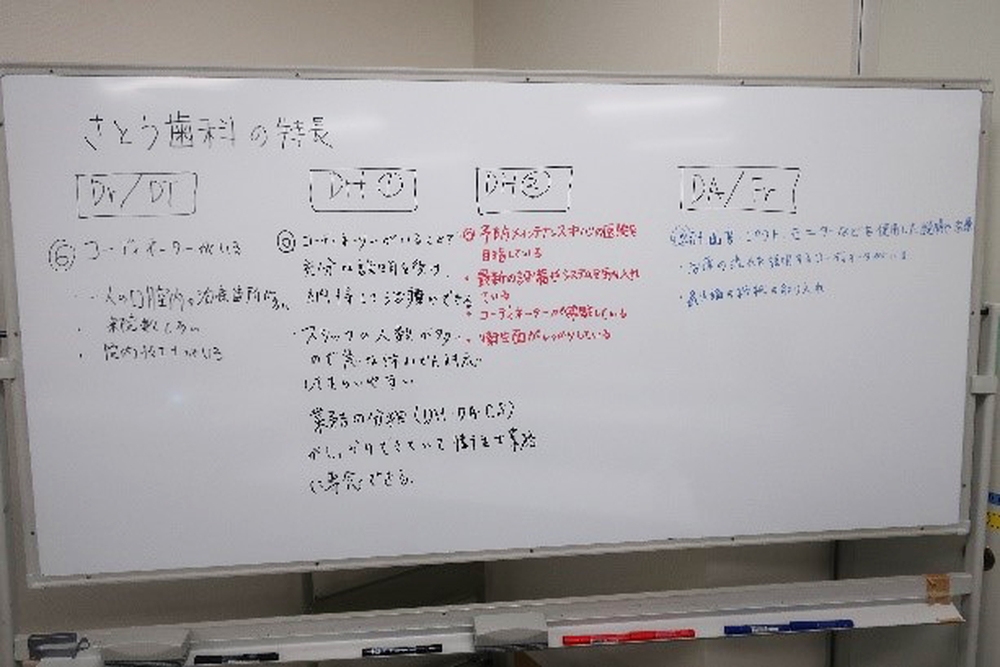 さとう歯科の特長
Dr/DT
⑥ コーディネーターがいる
・一人の口腔内の治療箇所が
・来院数
・院内技工士がいる
DH①
コーディネーターがいることで
充分な説明を受け、
納得して治療ができる
・スタッフの人数が多い
ので急な
してもらいやすい
業務の分担(DH・DA・CS)
がしっかりできていて衛生士業務
に専念できる。
DH②
予防メインテナンス中心の医院を
目指している
・最新の設備やシステムを取り入れ
ている
・コーディネーターが
・衛生面がしっかりしている
DA/Fr
ソフト、モニターなどを使用した
・治療の流れを説明するコーディネーターがいる